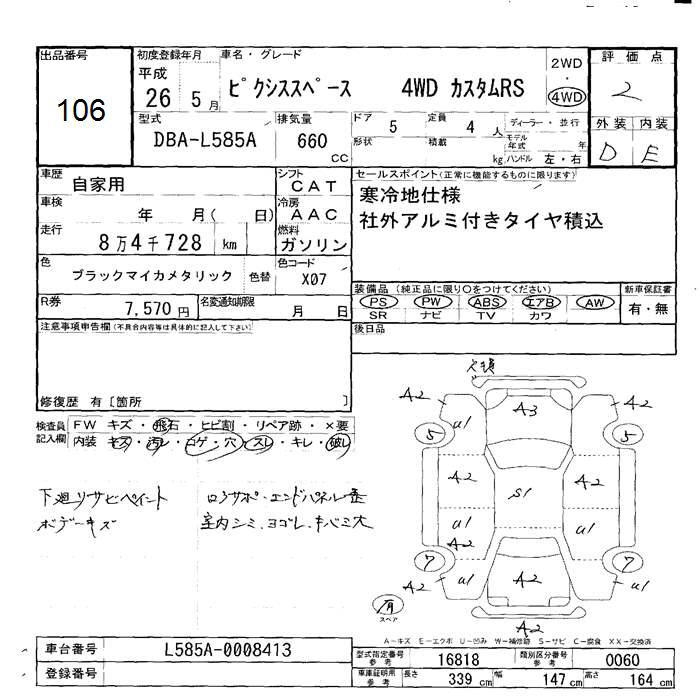 出品番号
106
初度登録年月
平成
26 5 月
車名・グレード
ピクシススペース 4WD カスタムRS
2WD
・
4WD
評価点
2
外装 内装
D E
型式
DBA-L585A
排気量
660
CC
ドア
5
定員
4 人
ディーラー・並行
形状
積載
kg
モデル年式 年
ハンドル 左・右
車歴
自家用
シフト
CAT
車検
年 月( 日)
冷房
AAC
走行
8万4千728 km
燃料
ガソリン
色
ブラックマイカメタリック
色替
色コード
X07
R券
7,570 円
名変通知期限
月 日
セールスポイント(正常に機能するものに限ります)
寒冷地仕様
社外アルミ付きタイヤ積込
装備品 (純正品に限り〇をつけてください)
PS PW ABS エアB AW
SR ナビ TV カワ
新車保証書
有・無
注意事項申告欄(不具合内容等は具体的に記入して下さい)
後日品
修復歴 有[箇所 ]
検査員
記入欄
FW キズ・飛石・ヒビ割・リペア跡・×要
内装 キズ・汚レ・コゲ・穴・スレ・キレ・破レ
下廻りサビペイント
ボデーキズ
室内シミ、ヨゴレ、キバミ大
A2
A3
A2
U1
U1
5
5
A2
S1
A2
U1
A2
U1
7
7
A2
U1
A2
U1
A2
有
スペア
A2
A-キズ E-エクボ U-凹み W-補修跡 S-サビ C-腐食 XX-交換済
車台番号
L585A-0008413
登録番号
型式指定番号
参考
16818
類別区分番号
参考
0060
車庫証明用
参考
長さ
339 cm
幅
147 cm
高さ
164 cm